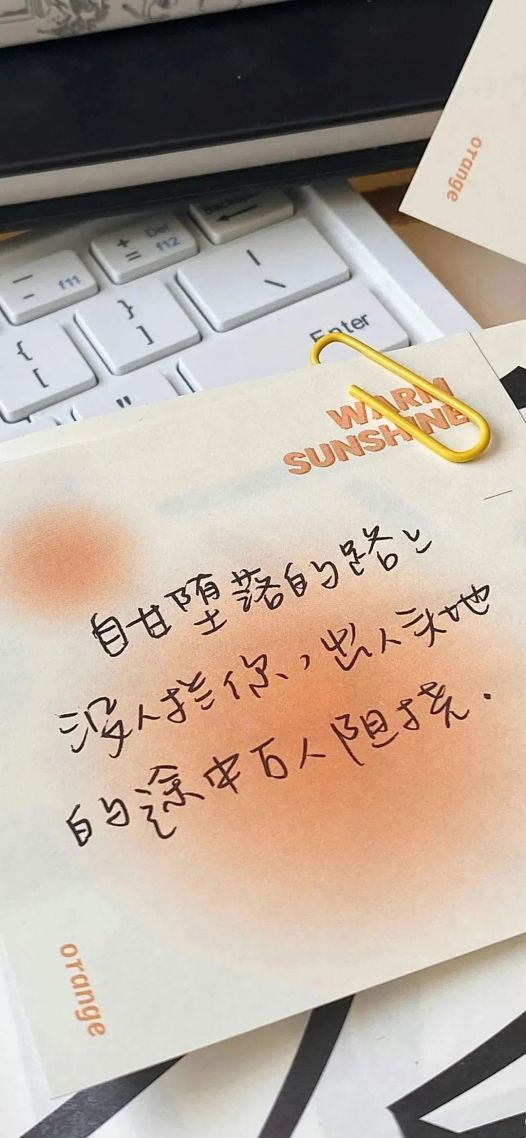 orange
Backspace
+
=
Del
f12
—
-
f11
|
\
}
]
{
[
Enter
"
WARM
SUNSHINE
自甘堕落的路上
没人拦你，出人头地
的途中百人阻挠.
orange